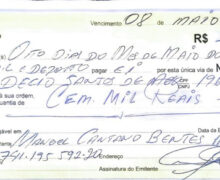 Vencimento 08 de MAIO
R$
OITO DIAS DO MÊS DE MAIO DO
MIL E DEZOITO pagar E I por esta única via de N
DECIO SANTOS DE
à sua ordem,
quantia de CEM MIL REAIS
pagável em
MANOEL CAETANO BENTES
741.195.592-20 Endereço
Assinatura do Emitente